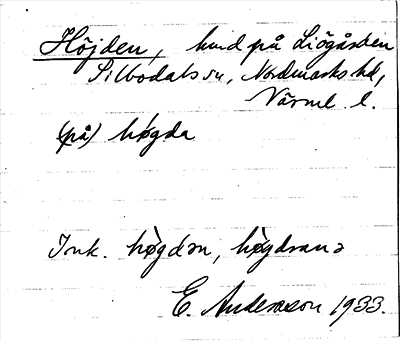 Höjden, hmd på Liögården
Silbodals sn, Nordmarks hd,
Värml. l.
(på) hø̀gda
Ink. hø̀gdən, hø̀gdrana
E. Andersson 1933.